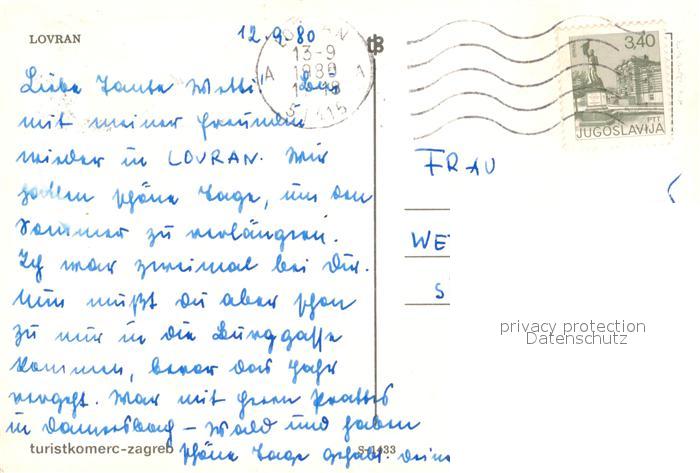 LOVRAN
12.9.80
LOVRAN
13-9
1980
A 1
3,40
PTT
JUGOSLAVIJA
Liebe Tante Wetti! Bin
mit meiner Freundin
wieder in LOVRAN. Wir
hatten schöne Tage, um den
Sommer zu verlängern.
Ich war zweimal bei Dir.
Nun mußt du aber schon
zu mir in die Burggasse
kommen, bevor das Jahr
vergeht. War mit Herrn
in - Wald und haben
schöne Tage gehabt. Deine
FRAU
WE
S
privacy protection
Datenschutz
turistkomerc-zagreb